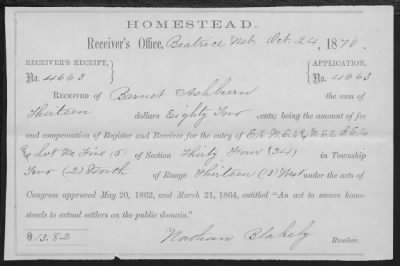 HOMESTEAD.
Receiver's Office, Beatrice Neb. Oct. 24, 1870.
RECEIVER'S RECEIPT, APPLICATION,
No. 4663 No. 4663
RECEIVED of Bennet Ashburn the sum of
Thirteen dollars Eighty Two cents; being the amount of fee
and compensation of Register and Receiver for the entry of E½ N.E.¼ N.E. S.E.¼
& Lot No Five (5) of Section Thirty Four (34) in Township
Two (2) North of Range Thirteen (13) West under the acts of
Congress approved May 20, 1862, and March 21, 1864, entitled "An act to secure home-
steads to actual settlers on the public domain."
$13.82
Nathan Blakely Receiver.